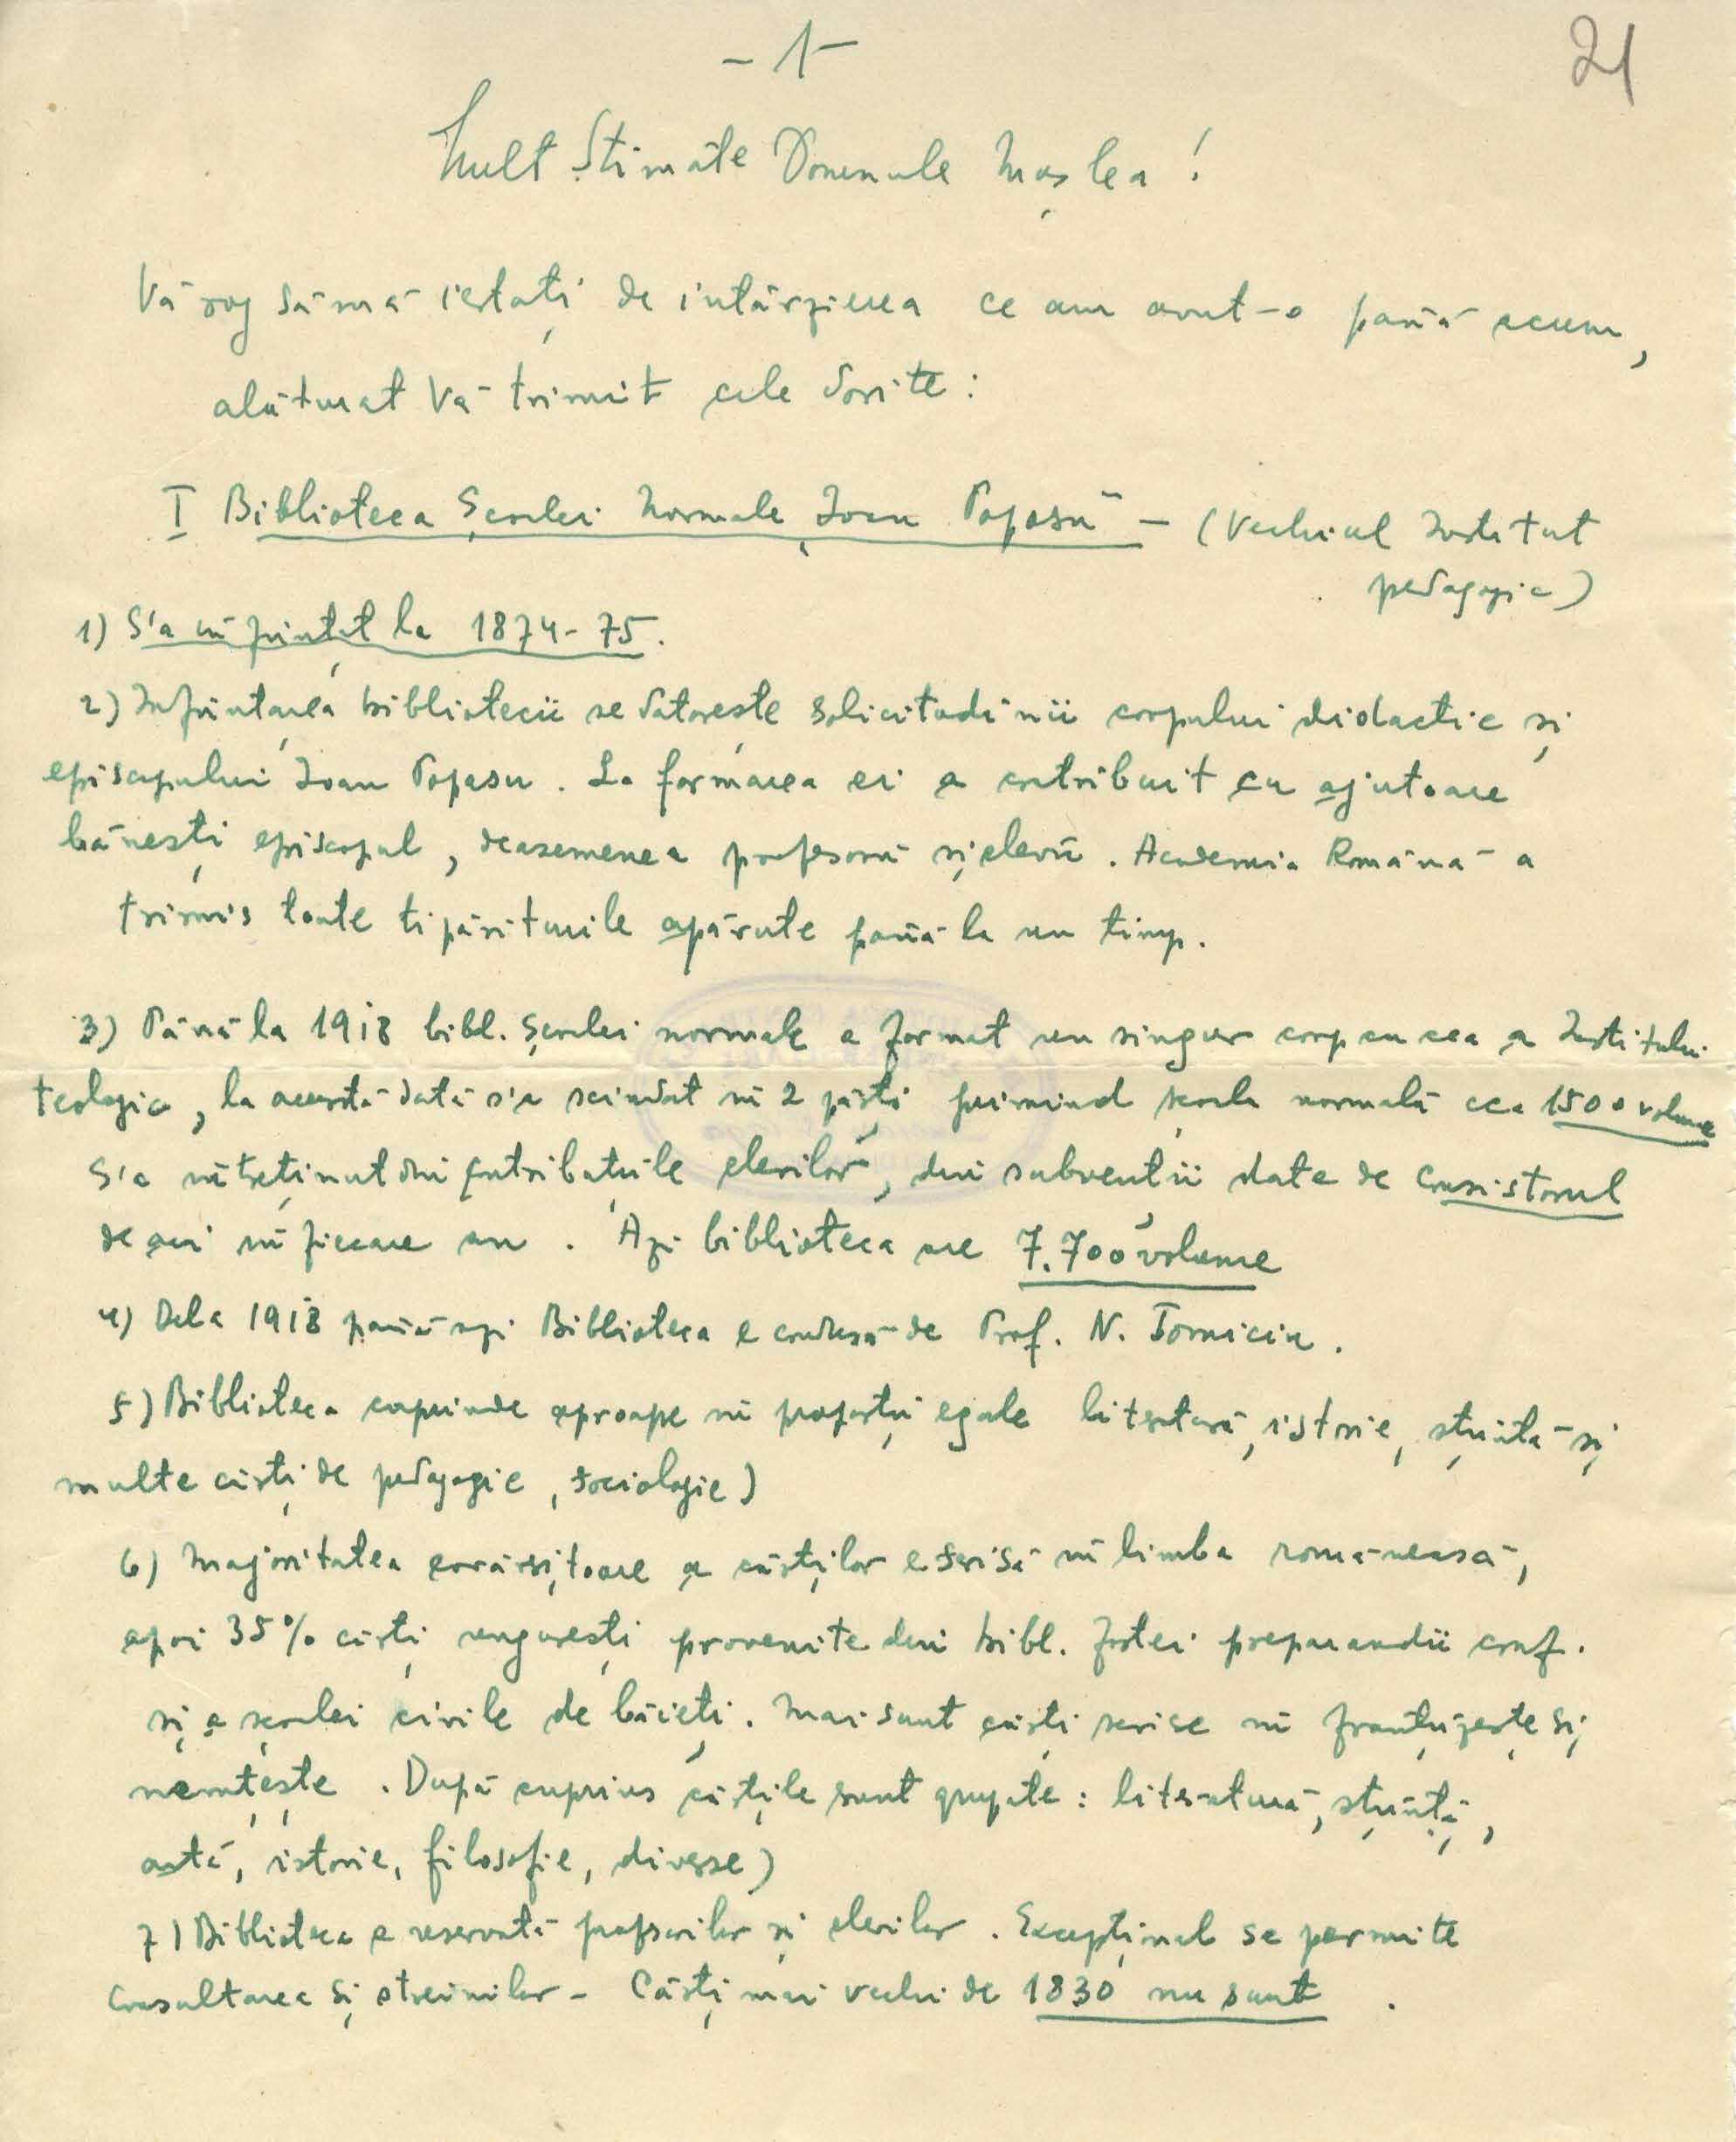 - 1 -
21
Mult Stimate Domnule Mușlea !
Vă rog să mă iertați de intârzierea ce am avut-o până acum,
alăturat Vă trimit cele dorite :
I Biblioteca Școalei Normale Ioan Popasu - (Vechiul Institut
pedagogic)
1) S'a înființat la 1874-75.
2) Inființarea bibliotecii se datorește solicitudinii corpului didactic și
episcopului Ioan Popasu. La formarea ei a contribuit cu ajutoare
bănești episcopul, deasemenea profesorii și elevii. Academia Română a
trimis toate tipăriturile apărute până la un timp.
3) Până la 1918 bibl. școalei normale a format un singur corp cu cea a Institului
teologic, la această dată s'a scindat în 2 părți primind școala normală cca 1500 volume
S'a întreținut din contribuțiile elevilor, din subvenții date de Consistorul
de aci în fiecare an. Azi biblioteca are 7.700 volume
4) Dela 1918 până azi Biblioteca e condusă de Prof. N. Tomiciu.
5) Biblioteca cuprinde aproape în proporții egale literatură, istorie, știință și
multe cărți de pedagogie, sociologie)
6) Majoritatea covârșitoare a cărților e scrisă în limba românească,
apoi 35% cărți ungurești provenite din bibl. fostei preparandii conf.
și a școalei civile de băieți. Mai sunt cărți scrise în franțuzește și
nemțește. După cuprins cărțile sunt grupate : literatură, știință,
artă, istorie, filosofie, diverse)
7) Biblioteca e reservată profesorilor și elevilor. Excepțional se permite
consultarea și streinilor - Cărți mai vechi de 1830 nu sunt .